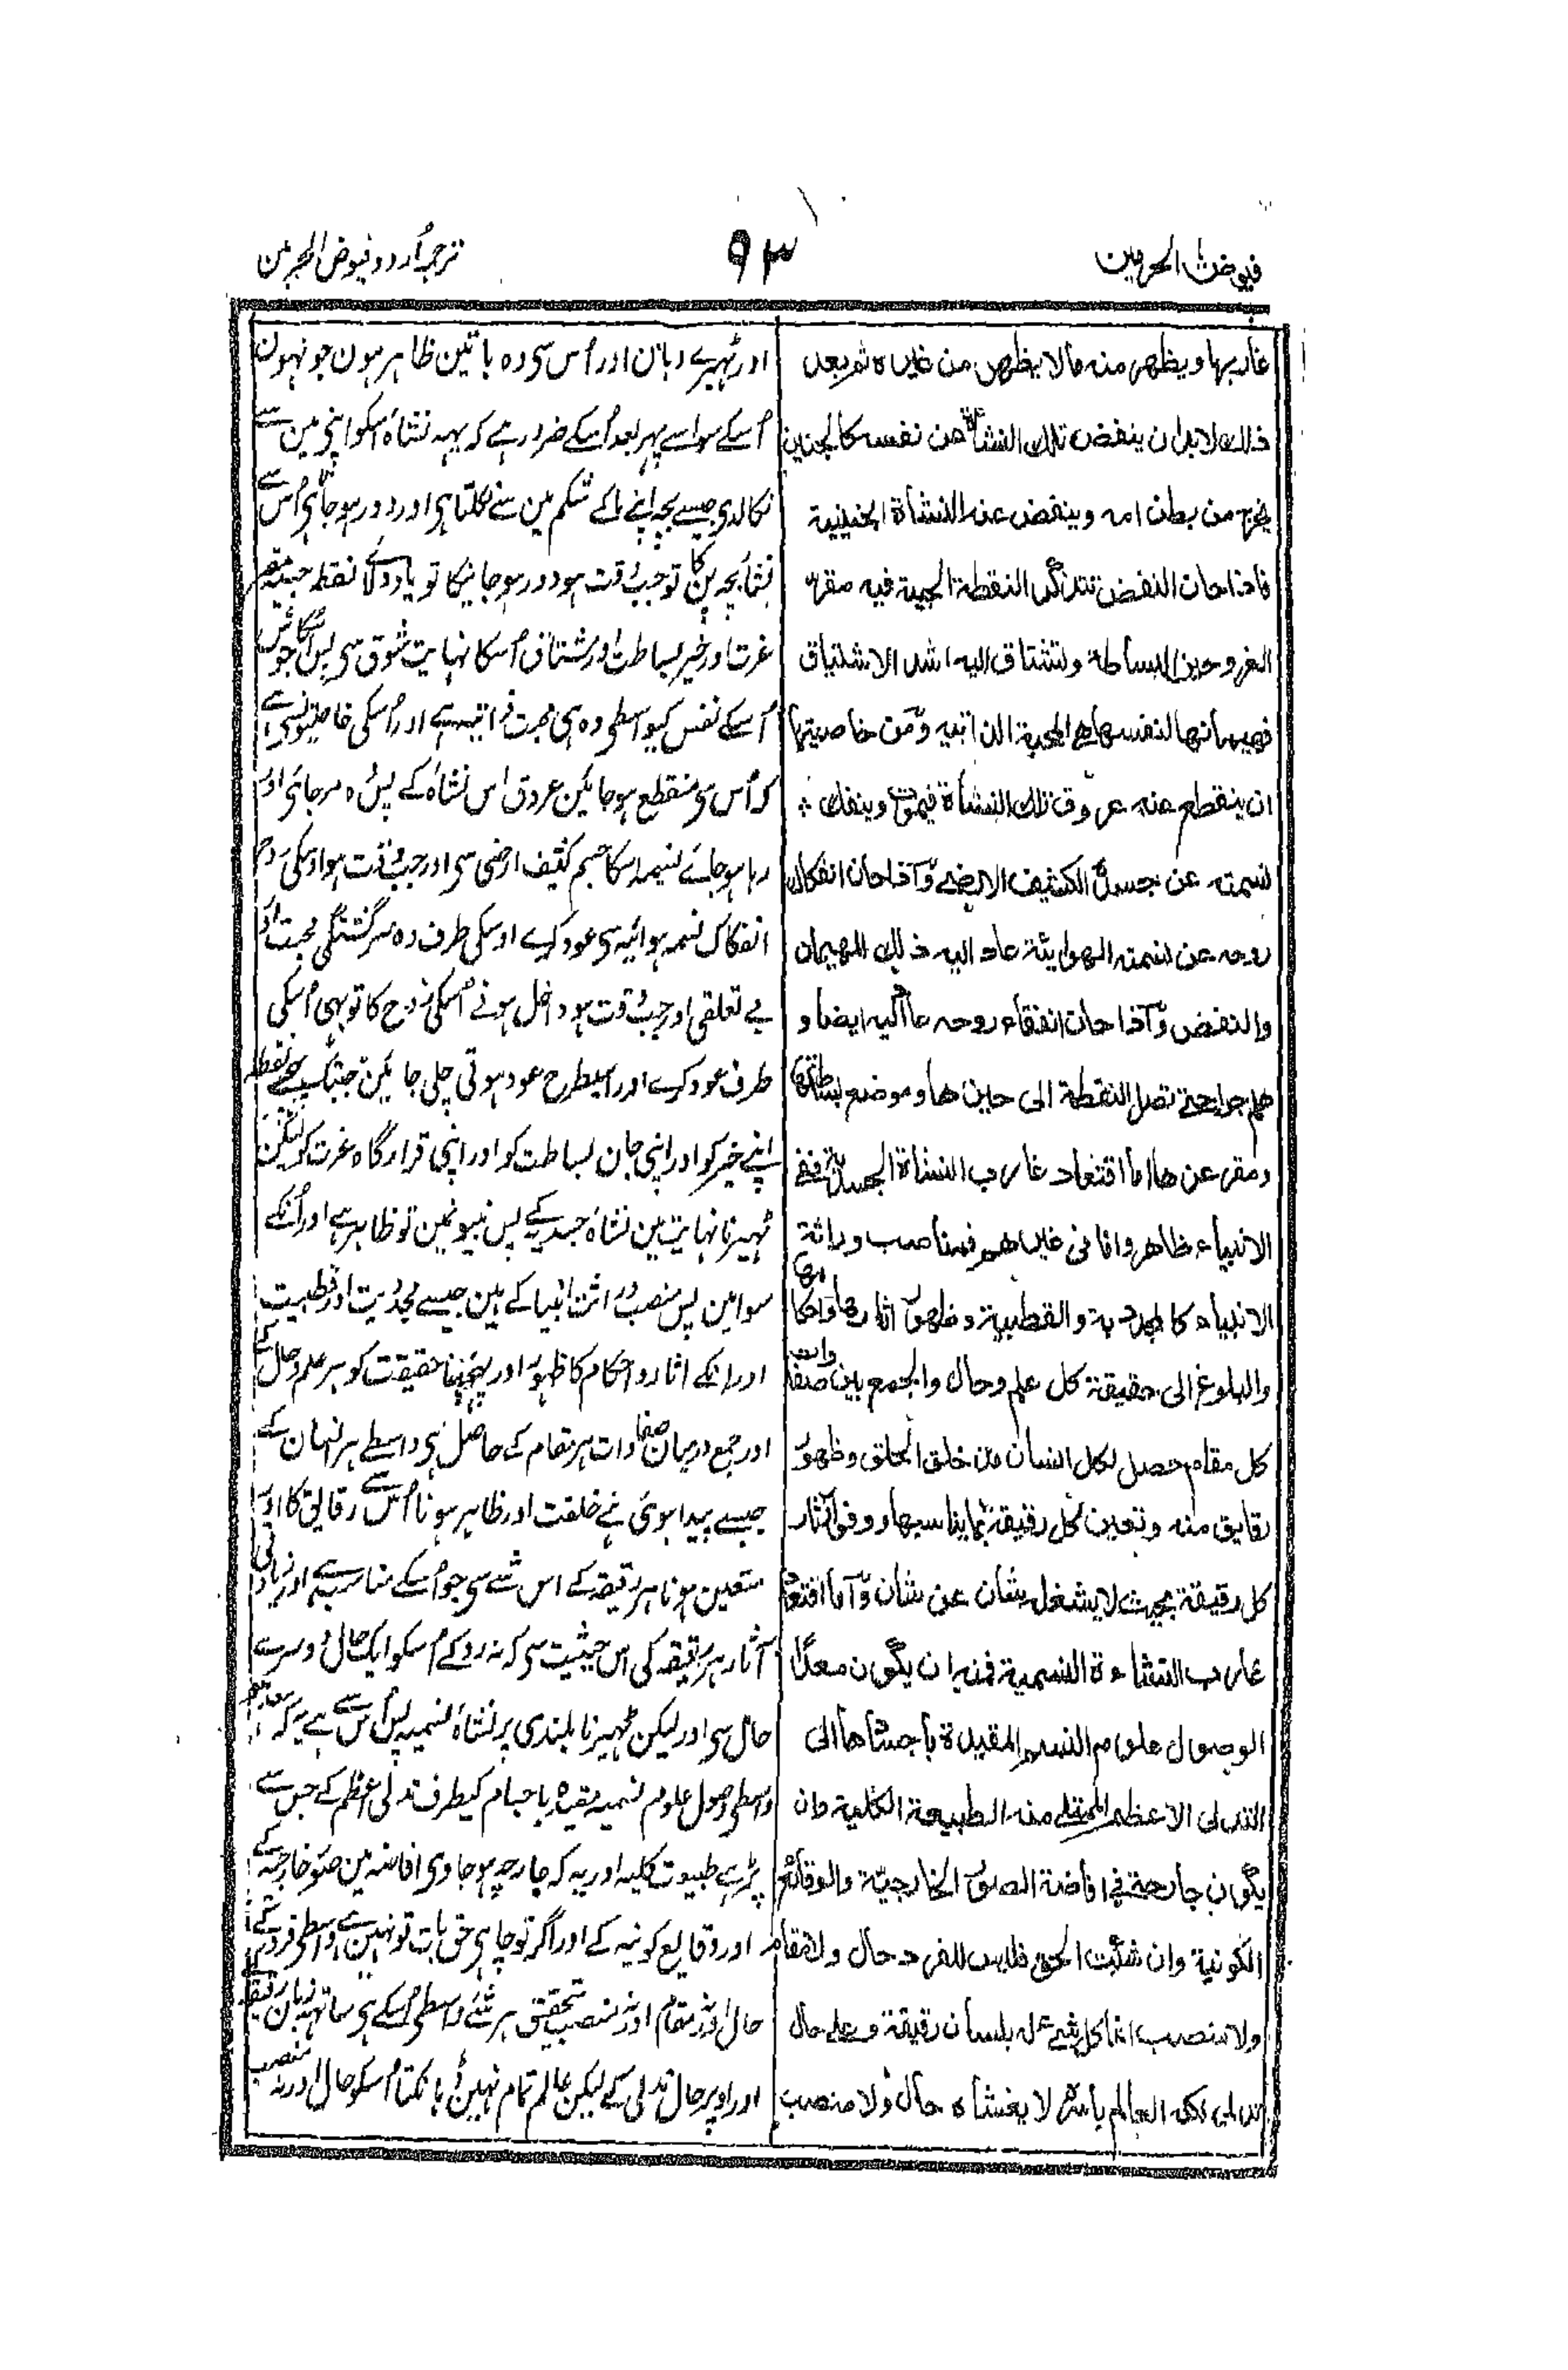 فيوض الحرمين
٩٣
ترجمہ اردو فیوض الحرمین
غاربها ويظهر منه مالا يظهر من غيره ثم بعد
ذلك لابد ان ينفض تلك النشأة من نفسه كالجنين
يخرج من بطن امه وينفض عنه النشاة الجنينية
فاذا حان النفض تتذكر النقطة الحبية فيه مقر
العز وحيز البساطة وتشتاق اليه اشد الاشتياق
لنفسها هى المحبة الذاتية ومن خاصيتها
ان ينقطع عنه عروق تلك النشأة فيموت وينفك
نسمته عن جسده الكثيف الارضى وآذا حان انفكاك
روحه عن نسمته الهوايئة عاد اليه ذلك الهيمان
والنفض وآذا حان روحه عاد اليه ايضا و
هلم جرا حتى تصل النقطة الى حيزها وموضع بساطتها
ومقر عزها اما اقتعاد غارب النشاة الجسدية ففى
الانبياء ظاهر واما فى غيرهم فمناصب وراثة
الانبياء كالمجددية والقطبية وظهور اثارها واحكامها
والبلوغ الى حقيقة كل علم وحال والجمع بين
كل مقام حصل لكل انسان من خلق الخلق وظهور
رقايق منه وتعين كل رقيقة بما يناسبها ووفور آثار
كل رقيقة بحيث لا يشغل بشان عن شان وآما اقتعاد
غارب النشاءة النسمية فمنه ان يكون معدًا
الوصول علوم النسم المقيدة باجسامها الى
التدلى الاعظم منه الطبيعة الكلية وان
يكون جارحة فى افاضة الصور الخارجيّة والوقائع
الكونية وان شئت الحق فليس للفرد حال ولا مقام
ولا منصب انما كل شئ له بلسان رقيقة وعلى حال
تدلى العالم باسره لا يغشاه حال ولا منصب
اور ٹہیرے وہان اور اُس سی وہ باتین ظاہر ہون جو نہون
اُسکے سوا سے پہر بعد اُسکے ضرور ہے کہ یہہ نشاۃ اسکو اپنی مین سے
نکالدی جیسے بچہ اپنے ماکے شکم مین سے نکلتا ہی اور دور ہو جاتا ہی اُس سے
توجب وقت ہو دور ہو جانیکا تو یاد کریگا نقطہ حبیہ مقر
عزت اور خیر بساطت اور مشتاق اُسکا نہایت شوق سی پس
اُسکے نفس کیواسطی وہ ہی محبت ذاتیہ ہے اور اُسکی خاصیتون سی ہے
کہ اُس سی منقطع ہو جائین عروق اس نشاۃ کے پس وہ مرجائی اور
رہا ہو جائے نسمہ اسکا جسم کثیف ارضی سی اور جب وقت ہوا وسکی روح
انفکاک نسمہ ہوائیہ سی عود کرے اوسکی طرف وہ سرگشتگی محبت اور
بے تعلقی اور جب وقت ہو اُسکی روح کا تو بہی اُسکی
طرف عود کرے اور اسیطرح عود ہوتی چلی جائین جبتک پہنچے نقطہ
اپنے خیر کو اور اپنی جان بساطت کو اور اپنی قرارگاہ عزت کو لیکن
ٹہیرنا نہایت مین نشاۃ جسدیہ کے پس نبیونمین تو ظاہر ہے اور اُنکے
سوا مین پس منصب وراثت انبیا کے ہین جیسے مجددیت اور قطبیت
اور انکے اثار و احکام کا ظہور اور پہنچنا حقیقت کو ہر علم و حال کے
اور جمع درمیان ہر مقام کے حاصل ہی واسطے ہر انسان کے
جیسے پیدا ہوئی ہے خلقت اور ظاہر ہونا اُس سے رقایق کا اور
متعین ہونا ہر رقیقہ کے اس شے سی جو اُسکے مناسب ہے اور زیادتی
آثار ہر رقیقہ کی اس حیثیت سی کہ نہ روکے اُسکو ایک حال دوسرے
حال سی اور لیکن ٹہیرنا بلندی پر نشاۃ نسمیہ پس اُس سے ہے یہ کہ
واسطی وصول علوم نسمیہ مقیدہ باجسام کیطرف تدلی اعظم کے جس سے
طبیعت کلیہ اور یہ کہ جارحہ ہو جاوی افاضہ مین صور خارجیہ کے
اور وقایع کونیہ کے اور اگر تو چاہی حق بات تو نہین ہے واسطی فرد کے
حال اور نہ مقام اور نہ منصب تحقیق ہر شے واسطی اُسکے ہی ساتھ زبان رقیقہ
اور اوپر حال تدلی کے لیکن عالم تمام نہین ڈہانکتا اُسکو حال اور نہ منصب